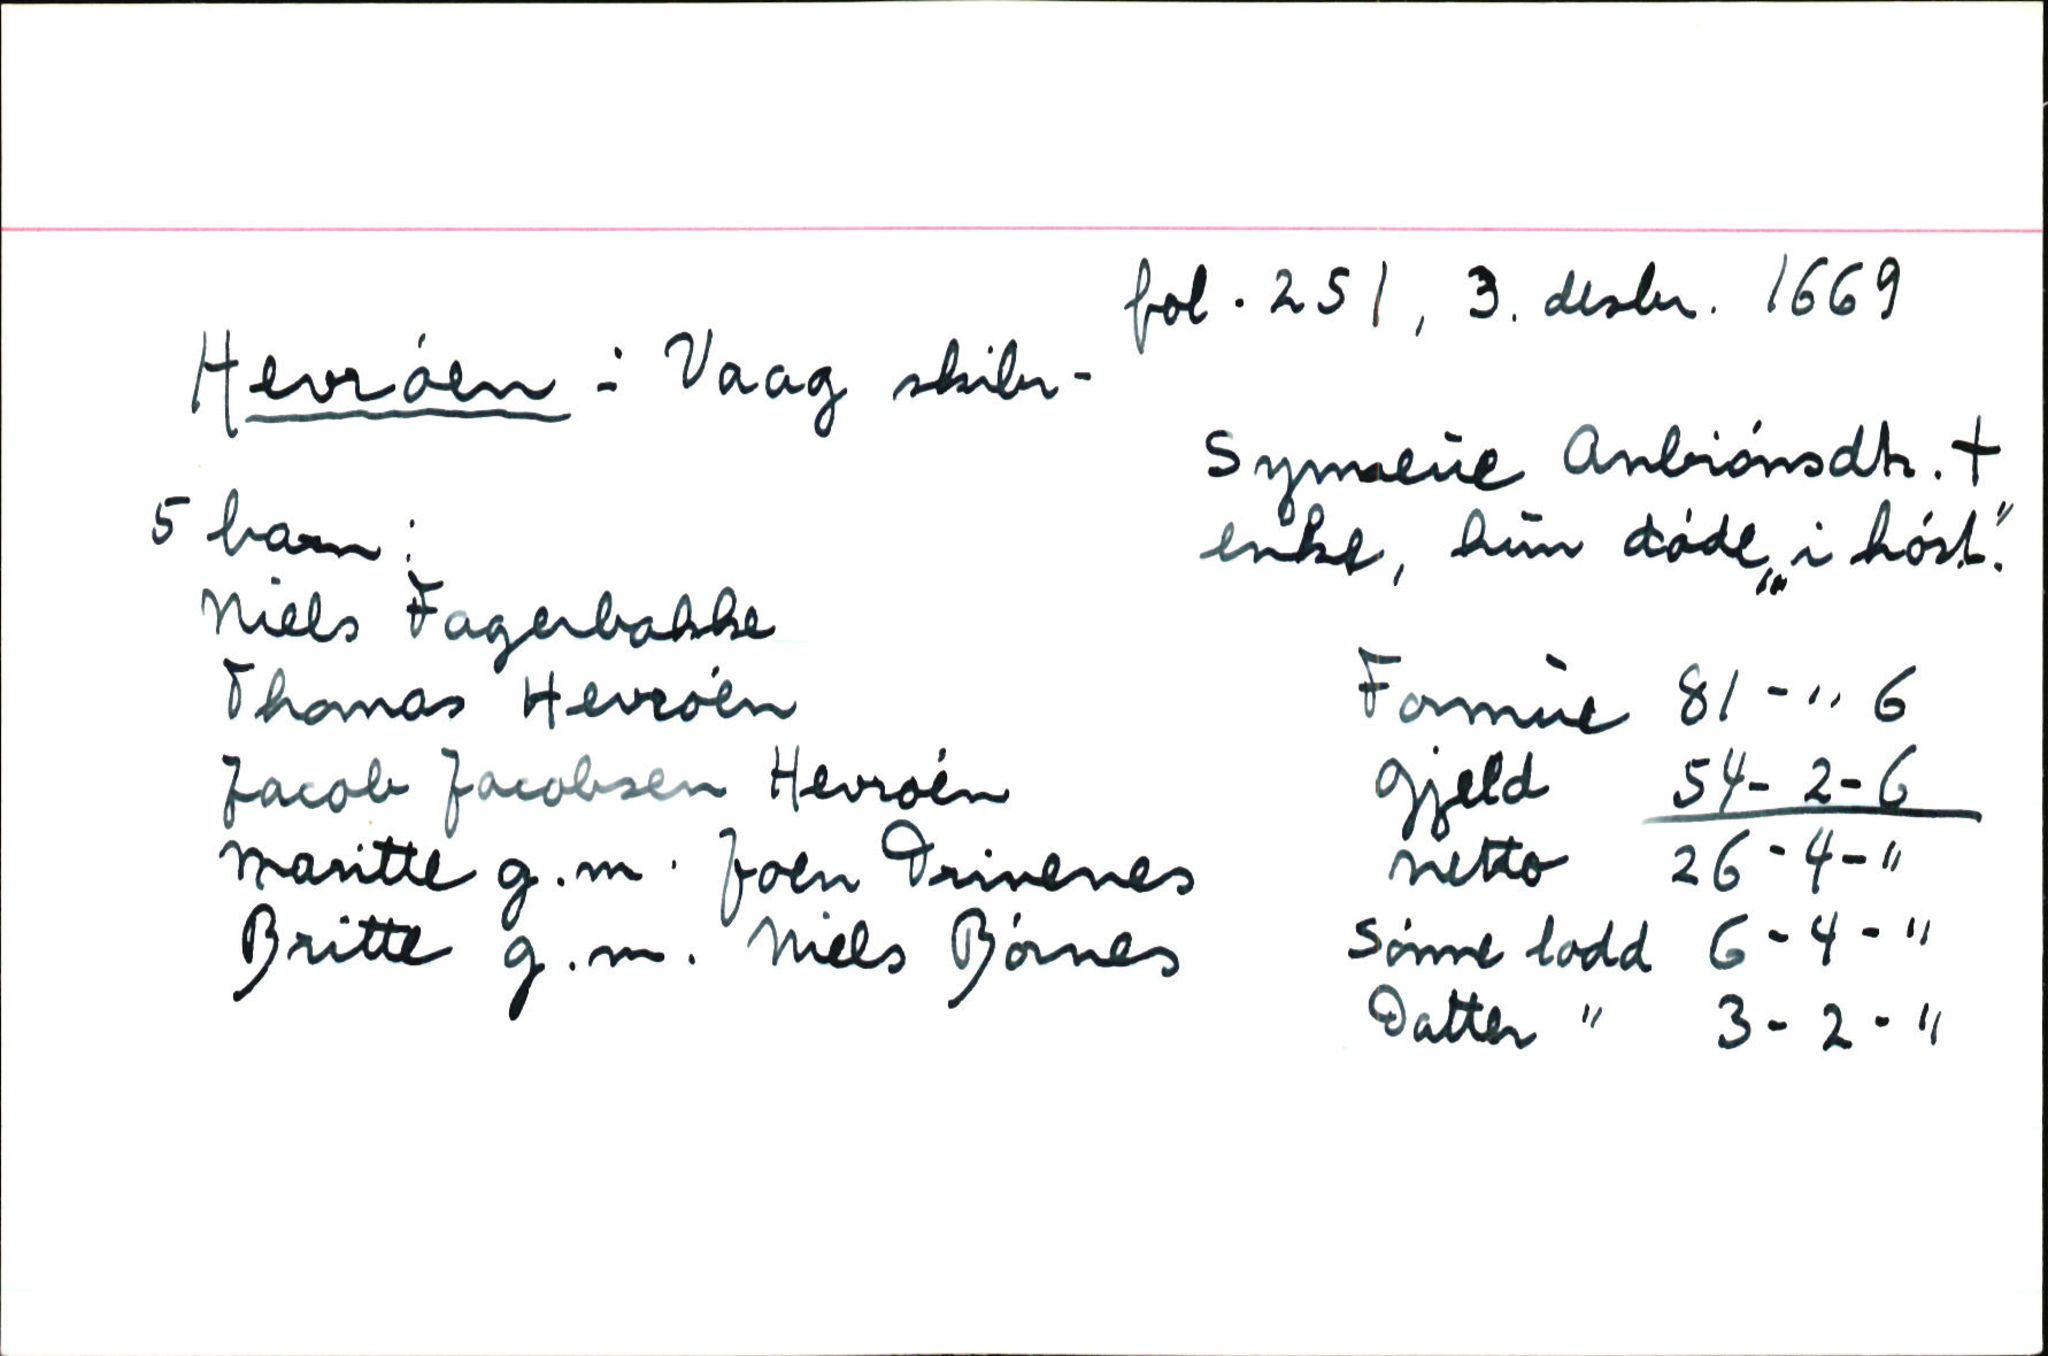 fol. 251, 3. desbr. 1669
Hevróen - i Vaag skibr -
Symneüe Anbiónsdtr. †
enke, hūn dóde „i hóst."
5 barn:
Niels Fagerbakke
Thomas Hevróen
Jacob Jacobsen Hevróen
Maritte g.m. Joen Drivenes
Britte g.m. Niels Bjórnes
Formùe 81 - " 6
Gjeld 54 - 2 - 6
netto 26 - 4 - "
Sónne lodd 6 - 4 - "
Datter " 3 - 2 - "